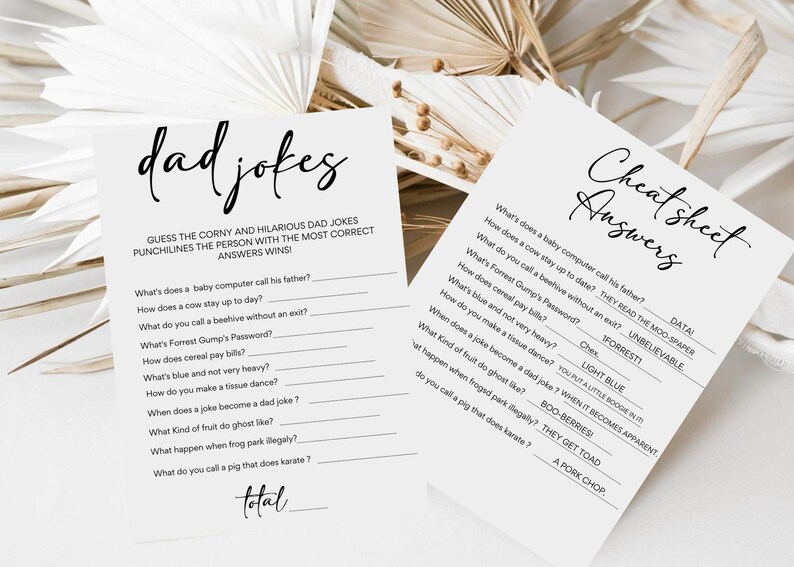 dad jokes
GUESS THE CORNY AND HILARIOUS DAD JOKES
PUNCHILINES THE PERSON WITH THE MOST CORRECT
ANSWERS WINS!
What's does a baby computer call his father?
How does a cow stay up to day?
What do you call a beehive without an exit?
What's Forrest Gump's Password?
How does cereal pay bills?
What's blue and not very heavy?
How do you make a tissue dance?
When does a joke become a dad joke ?
What Kind of fruit do ghost like?
What happen when frog park illegaly?
What do you call a pig that does karate ?
total
Cheat sheet
Answers
What's does a baby computer call his father? DATA!
How does a cow stay up to date? THEY READ THE MOO-SPAPER
What do you call a beehive without an exit? UNBELIEVABLE.
What's Forrest Gump's Password? 1FORREST1
How does cereal pay bills? Chex.
What's blue and not very heavy? LIGHT BLUE
How do you make a tissue dance? YOU PUT A LITTLE BOOGIE IN IT!
When does a joke become a dad joke ? WHEN IT BECOMES APPARENT.
What Kind of fruit do ghost like? BOO-BERRIES!
hat happen when frogsd park illegaly? THEY GET TOAD
do you call a pig that does karate ? A PORK CHOP.